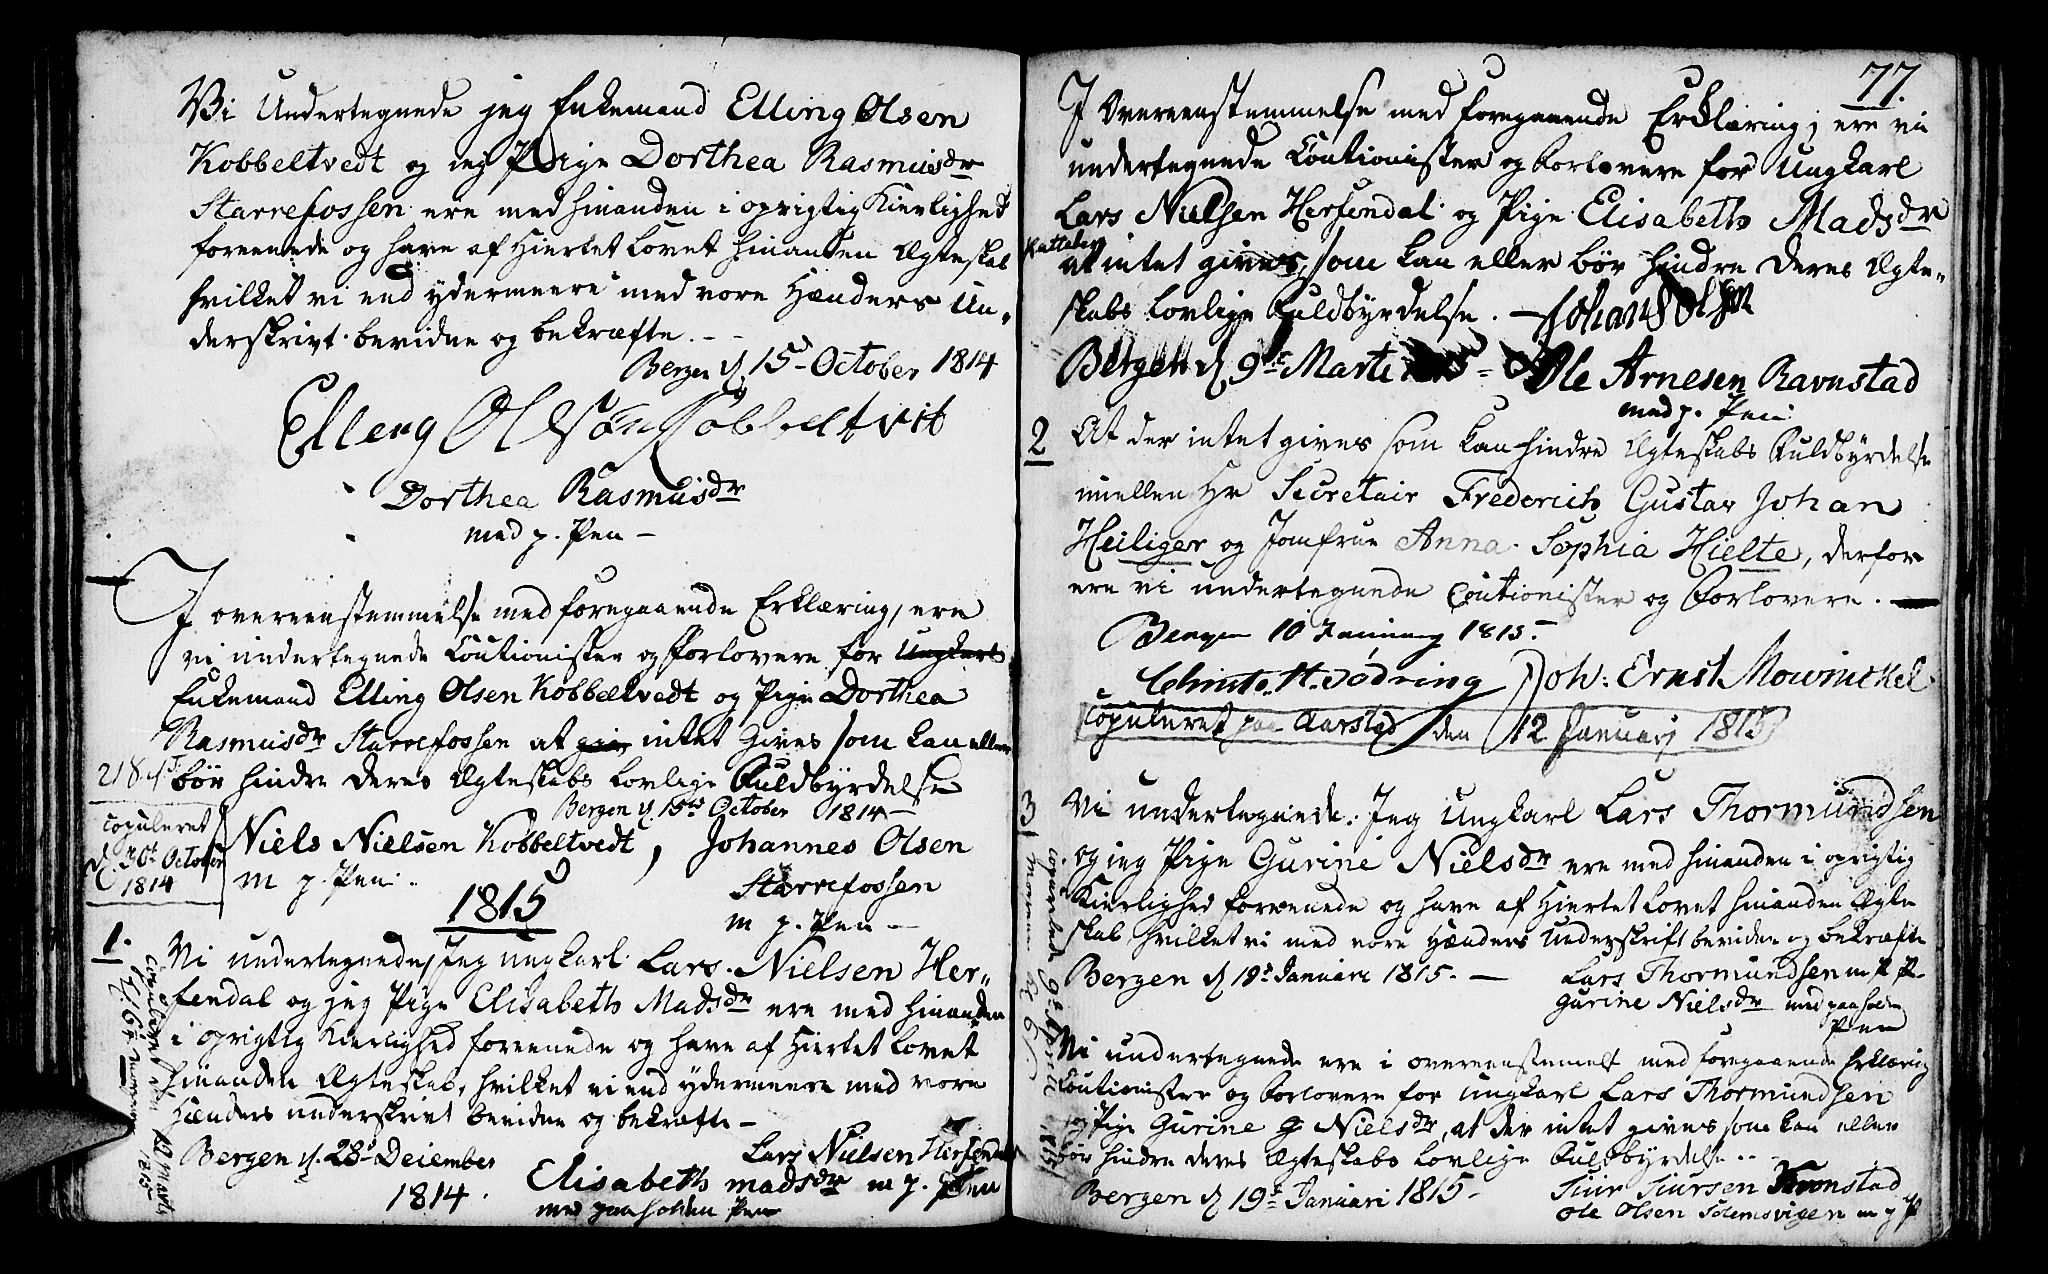 Vi Undertegnede jeg Enkemand Elling Olsen
Kobbeltvedt og ieg Pige Dorthea Rasmusdr
Starrefossen ere med hinanden i oprigtig Kierlighed
foreenede og have af Hiertet Lovet hinanden Ægteskab
hvilket vi end ydermeere med vore Hænders Un„
derskrivt bevidne og bekræfte. --
Bergen d 15 October 1814
Elleng Olsøn Kobbeltvit
Dorthea Rasmusdr
med p. Pen —
I overeenstemmelse med foregaaende Erklæring, ere
vi undertegnede Coutionister og Forlovere for Ungkarl
Enkemand Elling Olsen Kobbeltvedt og Pige Dorthea
Rasmusdr Starrefossen at giv intet gives som kan eller
bør hindre deres Ægteskabs lovlige Fuldbyrdelse
Bergen d. 15de October 1814 —
Niels Nielsen Kobbeltvedt, Johannes Olsen
m p. Pen. Starrefossen
m p. Pen —
copuleret
d 30t October
1814
1815
1.
Vi undertegnede, Jeg ungkarl Lars Nielsen Her„
fendal og jeg Pige Elisabeth Madsdr ere med hinanden
i oprigtig Kierlighed foreenede og have af Hiertet Lovet
hinanden Ægteskab, hvilket vi end ydermeere med vore
Hænders underskrivt bevidne og bekræfte —
Bergen d. 28 December Lars Nielsen Herfendal
1814. Elisabeth madsdr m p. Pen
med paaholden Pen
77.
I Overeenstemmelse med foregaaende Erklæring, ere vi
undertegnede Coutionister og Forlovere for Ungkarl
Lars Nielsen Herfendal og Pige Elisabeth Madsdr
at intet gives, som kan eller bør hindre deres Ægte„
skabs lovlige Fuldbyrdelse. — Johans Olsen
Bergen d 9t Marti Ole Arnesen Ravnstad
med p. Pen
2
At der intet gives som kan hindre Ægteskabs Fuldbyrdelse
imellem Hr Secretair Frederich Gustav Johan
Heiliger og Jomfrue Anna Sophia Hielte, derfor
ere vi undertegnede Coutionister og Forlovere. —
Bergen 10 Januarj 1815.
Christo. H. Dødring Joh: Ernst Mowinckel
Copuleret paa Aarstad den 12 Januarj 1815
3
Vi undertegnede. Jeg Ungkarl Lars Thormundsen
og jeg Pige Gurine Nielsdr ere med hinanden i oprigtig
Kierlighed foreenede og have af Hiertet Lovet hinanden Ægte
skab, hvilket vi med vore Hænders Underskrift bevidne og bekræfte
Bergen d 19t Januari 1815. — Lars Thormundsen m P P.
Gurine Nielsdr med paaholden
Pen
copulerede 9t April 1815
Vi undertegnede ere i overeenstemelse med foregaaende Erklæring
Coutionister og Forlovere for Ungkarl Lars Thormundsen
og Pige Gurine G Nielsdr, at der intet gives som kan eller
bør hindre deres Ægteskabs Lovlige Fuldbyrdelse --
Bergen d 19t Januari 1815 - Siur Siursen Kronstad
Ole Olsen Solemsvigen m p P